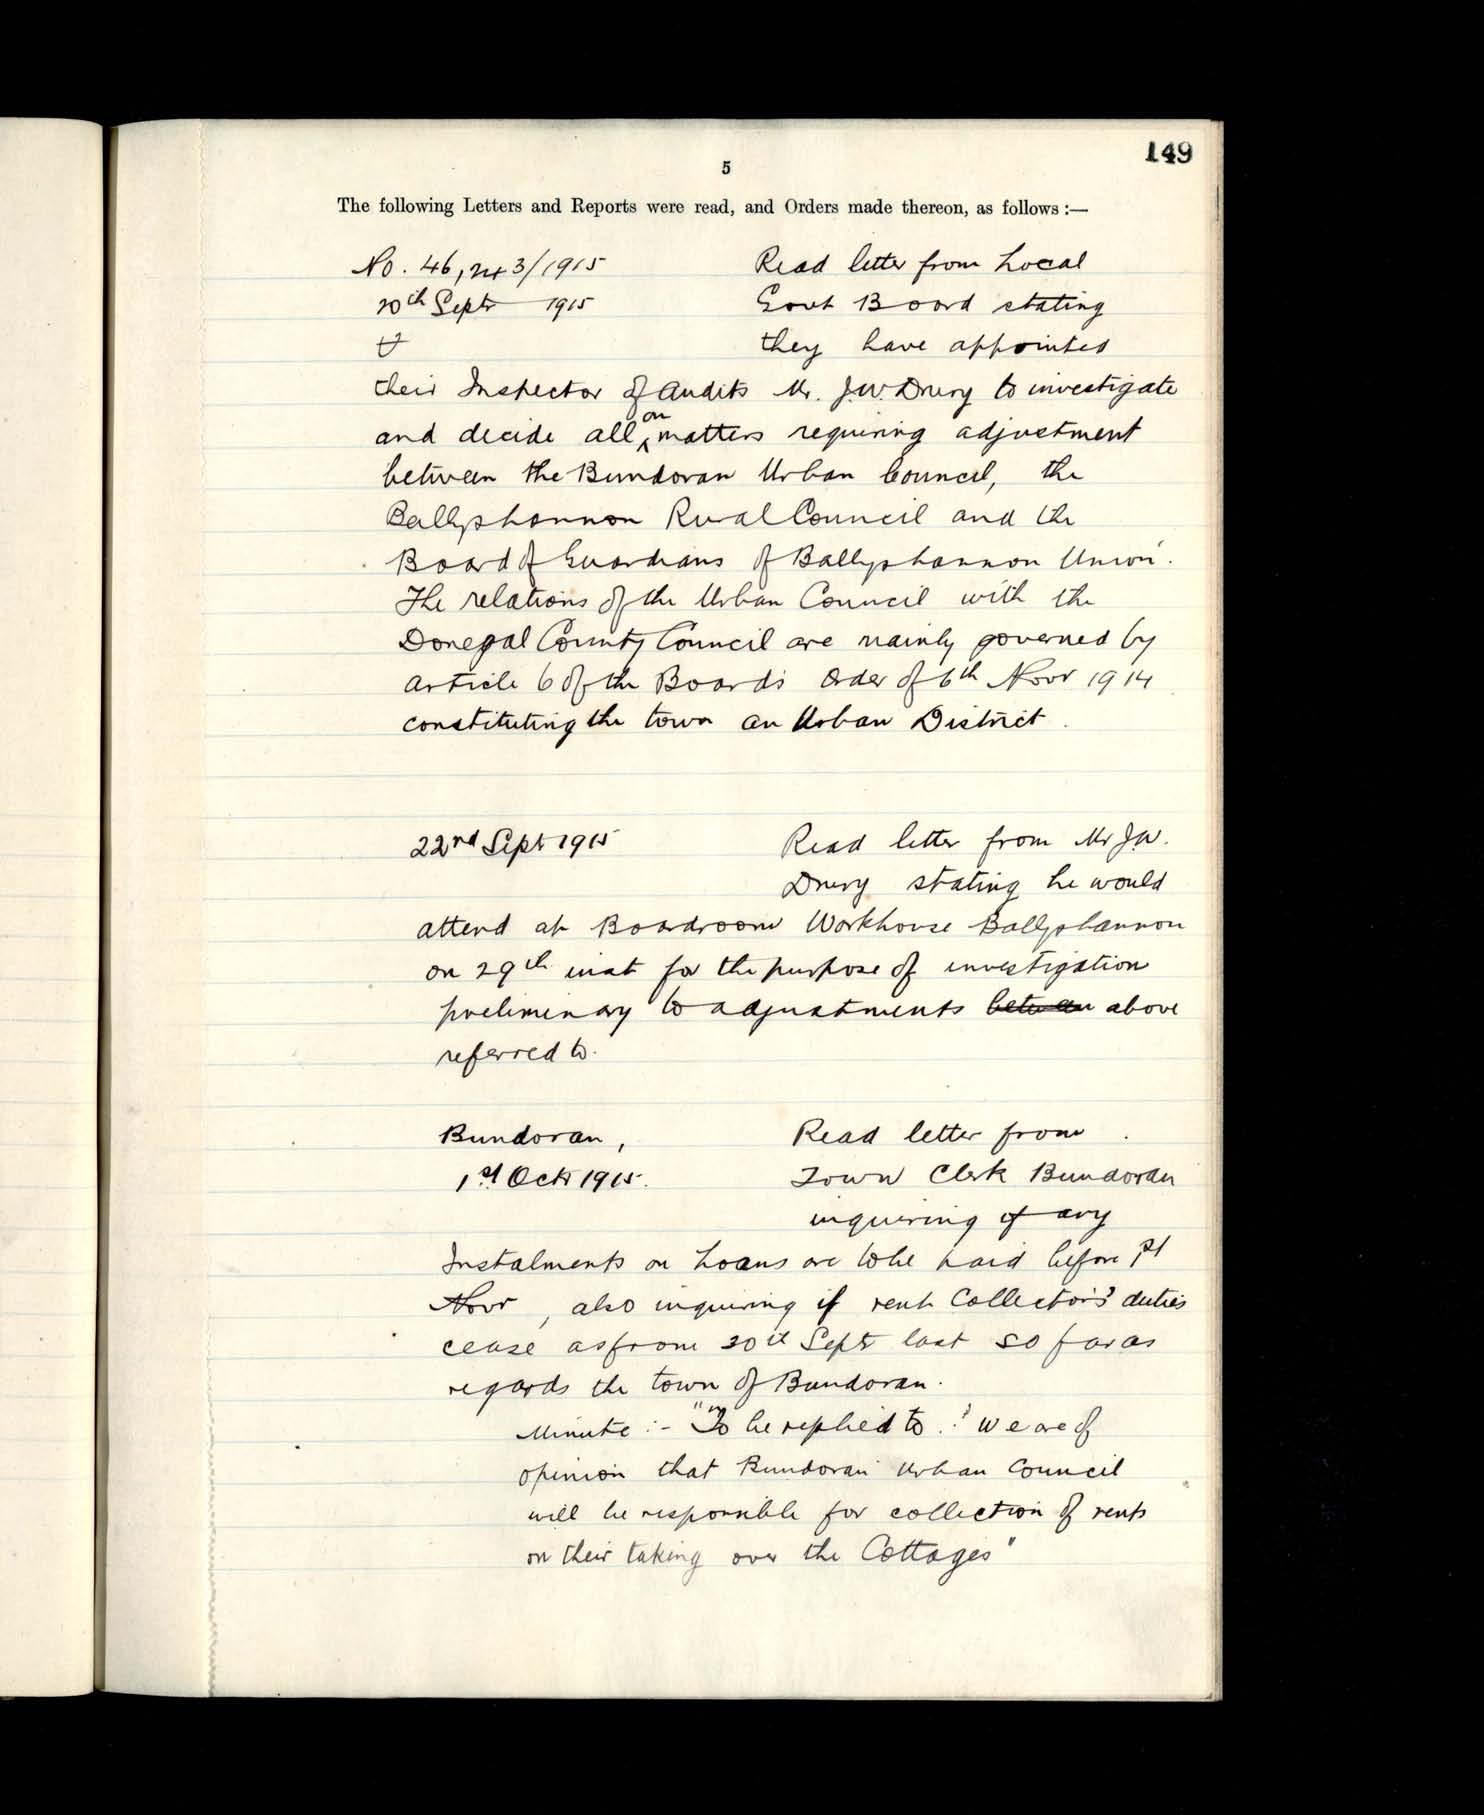 149
5
The following Letters and Reports were read, and Orders made thereon, as follows :—
No. 46,243/1915 Read letter from Local
20th Septr 1915 Govt Board stating
they have appointed
their Inspector of Audits Mr. J.W. Drury to investigate
and decide all on matters requiring adjustment
between the Bundoran Urban Council, the
Ballyshannon Rural Council and the
Board of Guardians of Ballyshannon Union.
The relations of the Urban Council with the
Donegal County Council are mainly governed by
Article 6 of the Board's Order of 6th Novr 1914
constituting the town an Urban District.
22nd Sept 1915 Read letter from Mr J.W.
Drury stating he would
attend at Boardroom Workhouse Ballyshannon
on 29th inst for the purpose of investigation
preliminary to adjustments between above
referred to.
Bundoran, Read letter from
1st Octr 1915. Town Clerk Bundoran
inquiring if any
Instalments on Loans are to be paid before 1st
Novr, also inquiring if rent Collector's duties
cease as from 30th Septr last so far as
regards the town of Bundoran.
Minute :- "To be replied to. We are of
opinion that Bundoran Urban Council
will be responsible for collection of rents
on their taking over the Cottages"